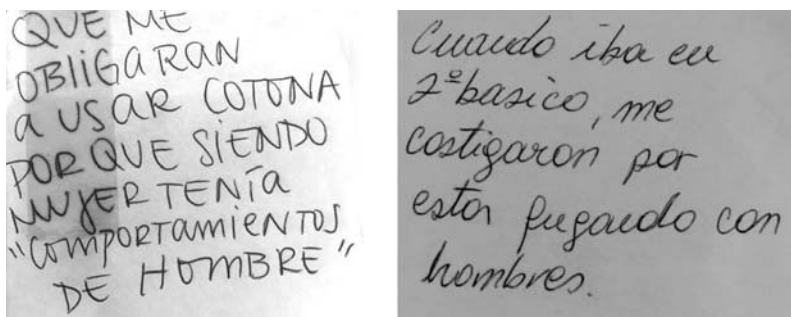 QUE ME
OBLIGARAN
A USAR COTONA
PORQUE SIENDO
MUJER TENÍA
"COMPORTAMIENTOS
DE HOMBRE"
Cuando iba en
2º basico, me
castigaron por
estar jugando con
hombres.